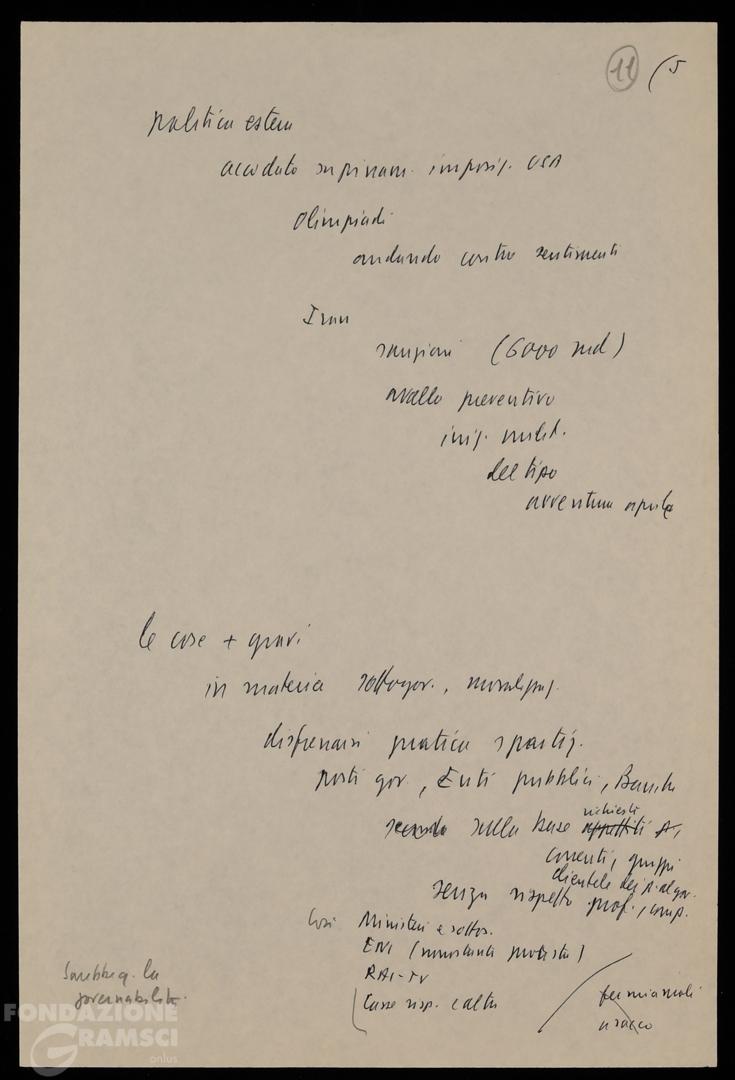 11 (5
politica estera
accodato supinam. imposiz. USA
Olimpiadi
andando contro sentimenti
Iran
sanzioni (6000 md)
avallo preventivo
iniz. milit.
del tipo
avventura aprile
le cose + gravi
in materia sottogov., moralizzaz.
disfrenarsi pratica spartiz.
posti gov., Enti pubblici, Banche
secondo sulla base appetiti
richieste
correnti, gruppi
clientele dei p. al gov.
senza rispetto prof., comp.
Così Ministeri e sottos.
ENI (nonostante protesta)
RAI-TV
Casse risp. e altri
fermiamoli
Sarebbe q. la
governabilità.
FONDAZIONE
GRAMSCI
onlus